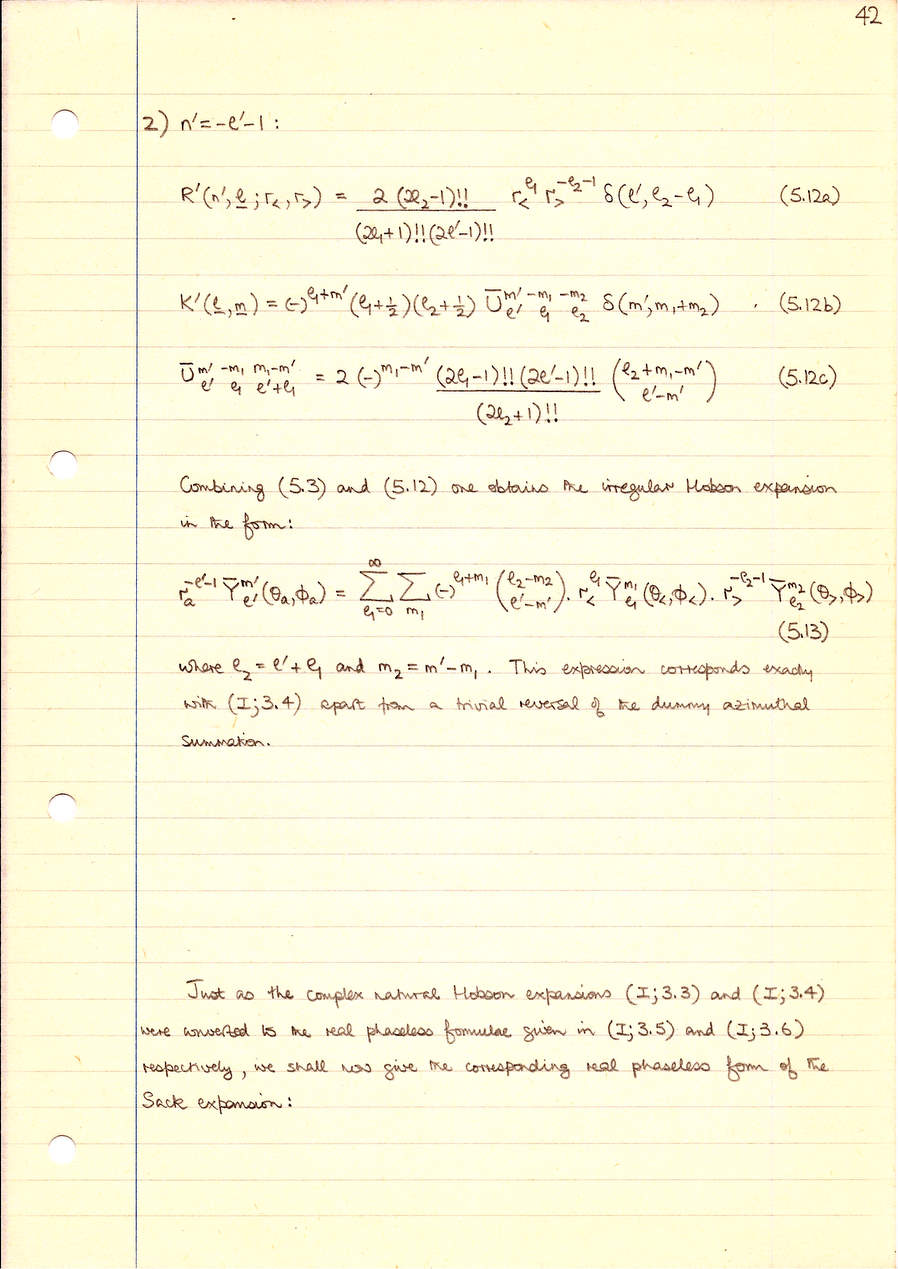 42
2) n′ = −ℓ′−1 :
R′(n′, ℓ̲ ; r<, r>) = 2 (2ℓ₂−1)!! / (2ℓ₁+1)!!(2ℓ′−1)!! r<^ℓ₁ r>^(−ℓ₂−1) δ(ℓ′, ℓ₂−ℓ₁) (5.12a)
K′(ℓ̲, m̲) = (−)^(ℓ₁+m′) (ℓ₁+½)(ℓ₂+½) Ū^(m′ −m₁ −m₂)_(ℓ′ ℓ₁ ℓ₂) δ(m′, m₁+m₂) . (5.12b)
Ū^(m′ −m₁ m₁−m′)_(ℓ′ ℓ₁ ℓ′+ℓ₁) = 2 (−)^(m₁−m′) (2ℓ₁−1)!! (2ℓ′−1)!! / (2ℓ₂+1)!! (ℓ₂+m₁−m′ over ℓ′−m′) (5.12c)
Combining (5.3) and (5.12) one obtains the irregular Hobson expansion
in the form:
r_a^(−ℓ′−1) Ȳ_ℓ′^m′(θ_a, φ_a) = Σ_(ℓ₁=0)^∞ Σ_(m₁) (−)^(ℓ₁+m₁) (ℓ₂−m₂ over ℓ′−m′) . r<^ℓ₁ Ȳ_ℓ₁^m₁(θ<, φ<) . r>^(−ℓ₂−1) Ȳ_ℓ₂^m₂(θ>, φ>)
(5.13)
where ℓ₂ = ℓ′ + ℓ₁ and m₂ = m′ − m₁ . This expression corresponds exactly
with (I;3.4) apart from a trivial reversal of the dummy azimuthal
summation.
Just as the complex natural Hobson expansions (I;3.3) and (I;3.4)
were converted to the real phaseless formulae given in (I;3.5) and (I;3.6)
respectively, we shall now give the corresponding real phaseless form of the
Sack expansion: